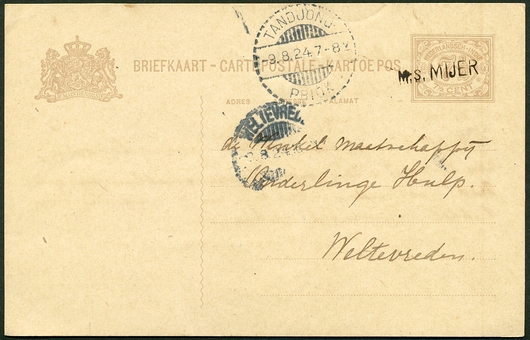 TANDJONG
8.8.24.7-8V
PRIOK
BRIEFKAART - CARTE POSTALE - KARTOE POS
NEDERLANDSCH-INDIE
CENT
M.S. MIJER
ADRES ALAMAT
WELTEVREDEN
8.8.24
de Winkel maatschappij
Onderlinge Hulp.
Weltevreden.